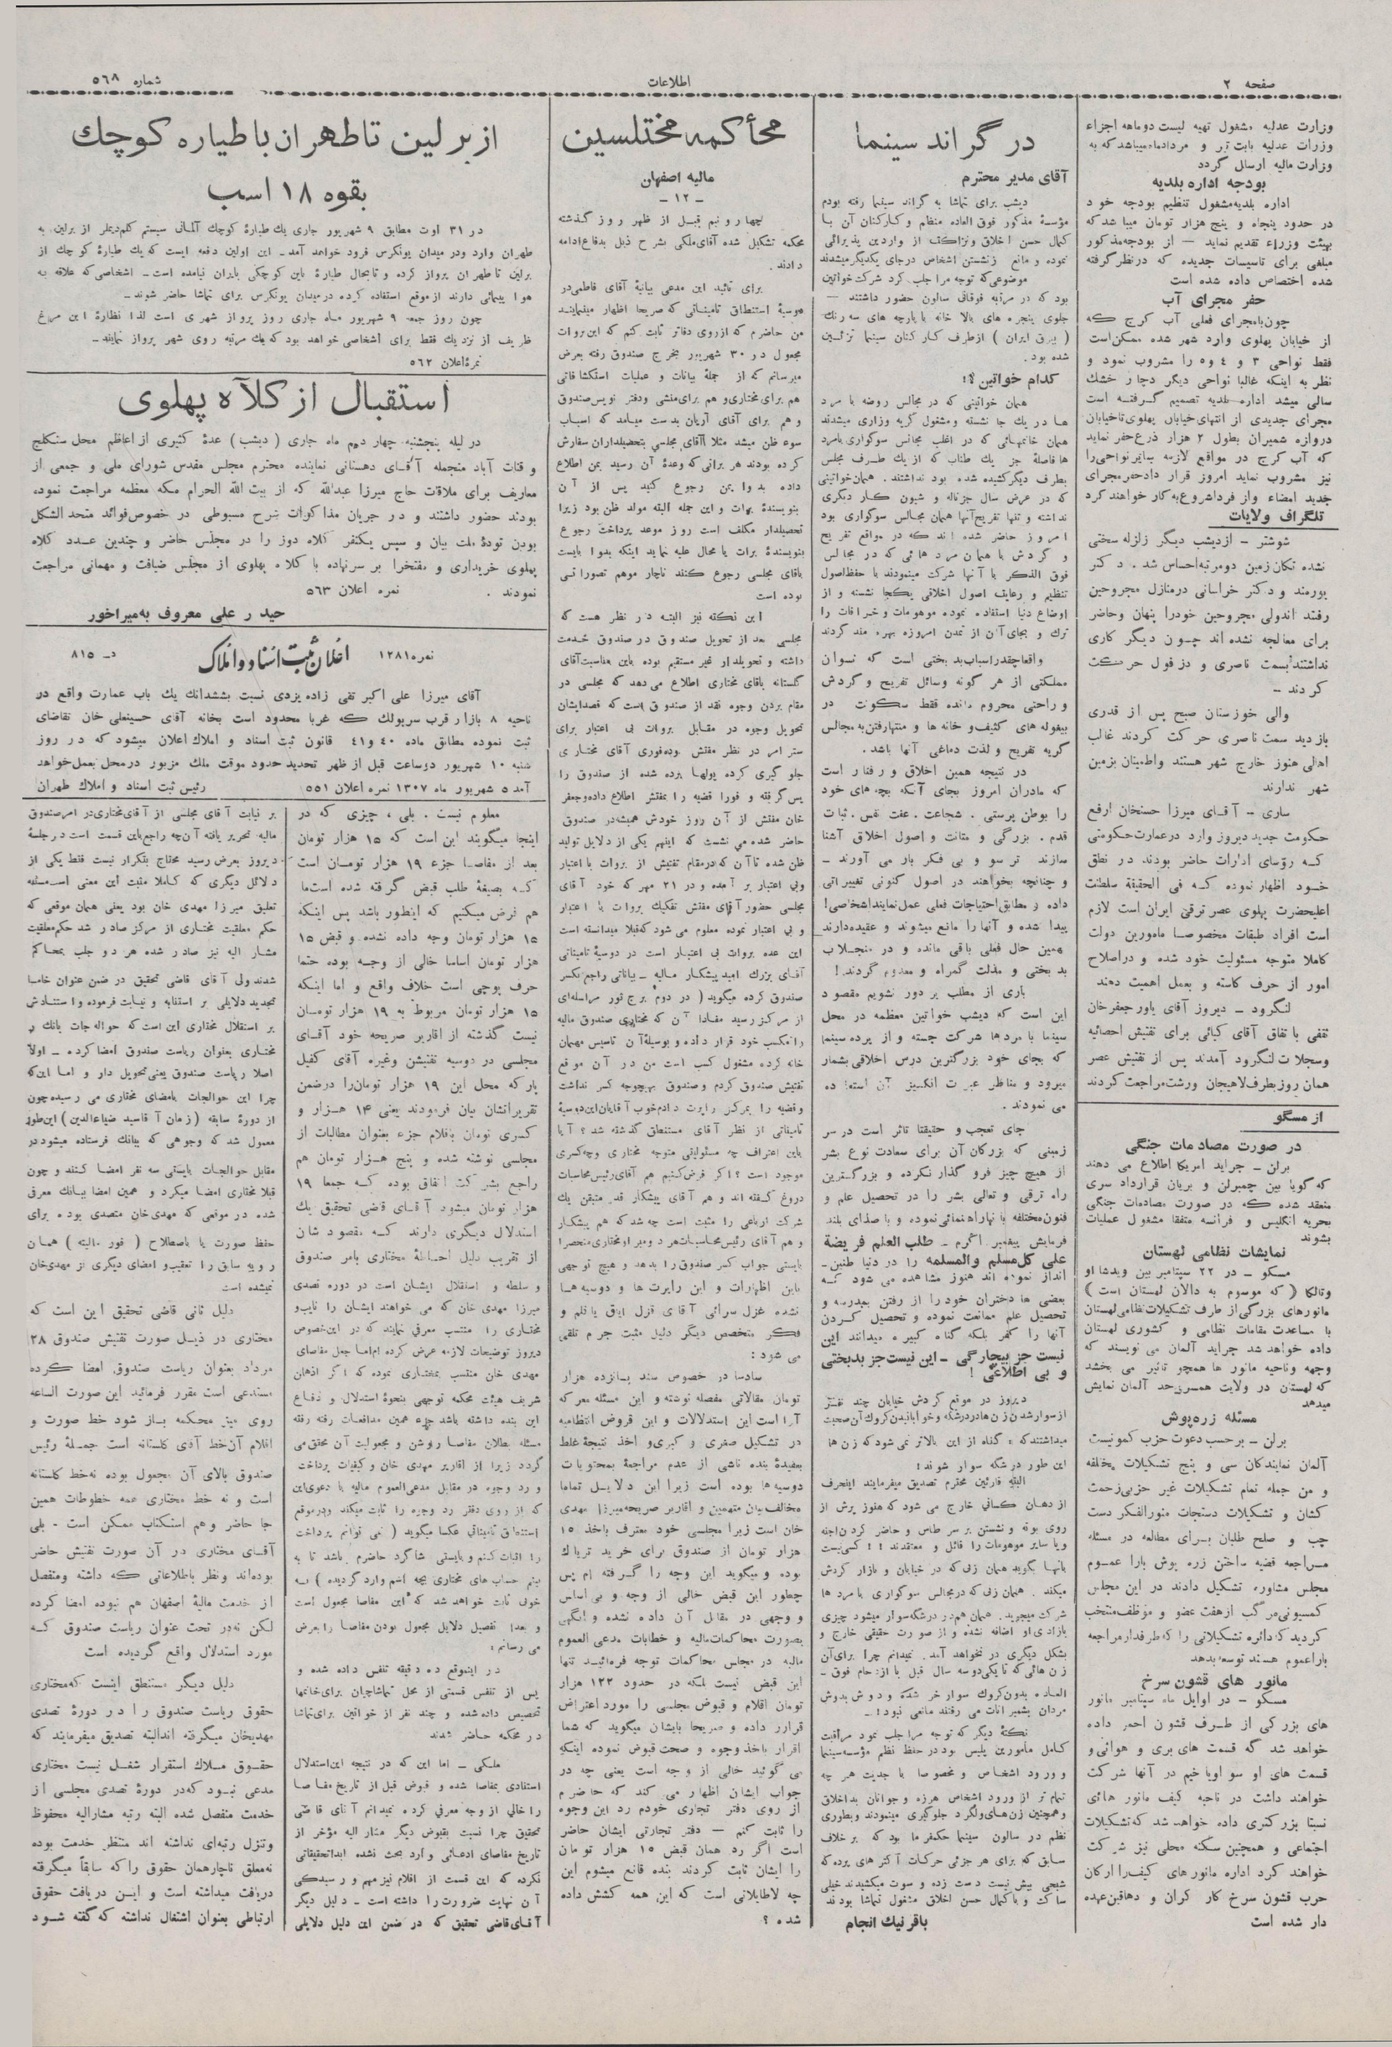 صفحه ۲
اطلاعات
شماره ۵۶۸
وزارت عدلیه مشغول تهیه لیست دوماهه اجزاء
وزرات عدلیه بابت تیر و مردادماه میباشد که به
وزارت مالیه ارسال گردد
بودجه اداره بلدیه
اداره بلدیه مشغول تنظیم بودجه خود
در حدود پنجاه و پنج هزار تومان میباشد که
بهیئت وزراء تقدیم نماید — از بودجه مذکور
مبلغی برای تاسیسات جدیده که در نظر گرفته
شده اختصاص داده شده است
حفر مجرای آب
چون با مجرای فعلی آب کرج که
از خیابان پهلوی وارد شهر شده ممکن است
فقط نواحی ۳ و ٤ و ٥ را مشروب نمود و
نظر به اینکه غالبا نواحی دیگر دچار خشک
سالی میشد اداره بلدیه تصمیم گرفته است
مجرای جدیدی از انتهای خیابان پهلوی تا خیابان
دروازه شمیران بطول ۲ هزار ذرع حفر نماید
که آب کرج در مواقع لازمه بسایر نواحی را
نیز مشروب نماید امروز قرار داد حفر مجرای
جدید امضاء و از فردا شروع به کار خواهند کرد
تلگراف ولایات
شوشتر – از دیشب دیگر زلزله سختی
نشده تکان زمین دومرتبه احساس شد . دکتر
پورمند و دکتر خراسانی در منازل مجروحین
رفتند اندولی مجروحین خودرا پنهان و حاضر
برای معالجه نشده اند چون دیگر کاری
نداشتند بسمت ناصری و دزفول حرکت
کردند –
والی خوزستان صبح پس از قدری
بازدید سمت ناصری حرکت کردند غالب
اهالی هنوز خارج شهر هستند و اطمینان بزمین
شهر ندارند
ساری – آقای میرزا حسنخان ارفع
حکومت جدید دیروز وارد در عمارت حکومتی
که رؤسای ادارات حاضر بودند در نطق
خود اظهار نموده که فی الحقیقة سلطنت
اعلیحضرت پهلوی عصر ترقی ایران است لازم
است افراد طبقات مخصوصا مامورین دولت
کاملا متوجه مسئولیت خود شده و در اصلاح
امور از حرف کاسته و بعمل اهمیت دهند
لنگرود – دیروز آقای یاور جعفرخان
ثقفی با تفاق آقای کیائی برای تفتیش احصائیه
وسجلات لنگرود آمدند پس از تفتیش عصر
همان روز بطرف لاهیجان ورشت مراجعت کردند
از مسگو
در صورت مصادمات جنگی
برلن – جراید امریکا اطلاع می دهند
که گویا بین چمبرلن و بریان قراردادسری
منعقد شده که در صورت مصادمات جنگی
بحریه انگلیس و فرانسه متفقا مشغول عملیات
بشوند
نمایشات نظامی لهستان
مسکو – در ۲۲ سپتامبر بین ویدشاو
وتالکا ( که موسوم به دالان لهستان است )
مانورهای بزرگی از طرف تشکیلات نظامی لهستان
با مساعدت مقامات نظامی و کشوری لهستان
داده خواهد شد جراید آلمان می نویسند که
وجهه وناحیه مانور ها همچو تاثیر می بخشد
که لهستان در ولایت همسرحد آلمان نمایش
میدهد
مسئله زره پوش
برلن – بر حسب دعوت حزب کمونیست
آلمان نمایندکان سی و پنج تشکیلات مختلفه
و من جمله تمام تشکیلات غیر حزبی زحمت
کشان و تشکیلات دستجات منورالفکر دست
چپ و صلح طلبان برای مطالعه در مسئله
مراجعه قضیه ساختن زره پوش بارا عموم
مجلس مشاوره تشکیل دادند در این مجلس
کمسیونی مرکب از هفت عضو و موظف منتخب
گردید که دائره تشکیلاتی را که طرفدار مراجعه
باراعموم هستند توسعه بدهد
مانور های قشون سرخ
مسکو – در اوایل ماه سپتامبر مانور
های بزرگی از طرف قشون احمر داده
خواهد شد که قسمت های بری و هوائی و
قسمت های او سواویاخیم در آنها شرکت
خواهند داشت در ناحیه کیف مانور هائی
نسبتا بزرگتری داده خواهد شد که تشکیلات
اجتماعی و همچنین سکنه محلی نیز شرکت
خواهند کرد اداره مانور های کیف را ارکان
حرب قشون سرخ کار کران و دهاقین عهده
دار شده است
در گراند سینما
آقای مدیر محترم
دیشب برای تماشا به گراند سینما رفته بودم
مؤسسهٔ مذکور فوق العاده منظم و کارکنان آن با
کمال حسن اخلاق ونزاکت از واردین پذیرائی
نموده و مانع زنشستن اشخاص درجای یکدیگر میشدند
موضوعی که توجه مرا جلب کرد شرکت خواتین
بود که در مرتبه فوقانی سالون حضور داشتند –
جلوی پنجره های بالا خانه با پارچه های سه رنگ
( بیرق ایران ) از طرف کارکنان سینما تزئین
شده بود .
کدام خواتین ؟!
همان خواتینی که در مجالس روضه با مرد
ها در یک جا نشسته ومشغول گریه وزاری میشدند
همان خانمهائی که در اغلب مجالس سوگواری بامرد
ها فاصله جز یک طناب که از یک طرف مجلس
بطرف دیگر کشیده شده بود نداشتند . همان خواتینی
که در عرض سال جز ناله و شیون کار دیگری
نداشته و تنها تفریح آنها همان مجالس سوگواری بود
امروز حاضر شده اند که در مواقع تفریح
و گردش با همان مرد هائی که در مجالس
فوق الذکر با آنها شرکت مینمودند با حفظ اصول
تنظیم و رعایت اصول اخلاقی یکجا نشسته و از
اوضاع دنیا استفاده نموده موهومات و خرافات را
ترک و بجای آن از تمدن امروزه بهره مند گردند
واقعا چقدر اسباب بدبختی است که نسوان
مملکتی از هر گونه وسائل تفریح و گردش
و راحتی محروم مانده فقط سکونت در
بیغوله های کثیف و خانه ها و منتها رفتن به مجالس
گریه تفریح و لذت دماغی آنها باشد.
در نتیجه همین اخلاق و رفتار است
که مادران امروز بجای آنکه بچه های خود
را بوطن پرستی . شجاعت . عفت نفس . ثبات
قدم . بزرگی و متانت و اصول اخلاق آشنا
سازند ترسو و بی فکر بار می آورند –
و چنانچه بخواهند در اصول کنونی تغییراتی
داده و مطابق احتیاجات فعلی عمل نمایند اشخاصی!
پیدا شده و آنها را مانع میشوند و عقیده دارند
بهمین حال فعلی باقی مانده و در منجلاب
بدبختی و مذلت گمراه و معدوم گردند!
باری از مطلب پر دور نشویم مقصود
این است که دیشب خواتین معظمه در محل
سینما با مردها شرکت جسته و از پرده سینما
که بجای خود بزرگترین درس اخلاقی بشمار
میرود و مناظر عبرت انگیز آن استفاده
می نمودند .
جای تعجب و حقیقتا تاثر است در سر
زمینی که بزرگان آن برای سعادت نوع بشر
از هیچ چیز فرو گذار نکرده و بزرگترین
راه ترقی و تعالی بشر را در تحصیل علم و
فنون مختلفه با نها راهنمائی نموده و با صدای بلند
فرمایش پیغمبر اکرم – طلب العلم فریضة
علی کل مسلم والمسلمه را در دنیا طنین
انداز نموده اند هنوز مشاهده می شود که
بعضی ها دختران خود را از رفتن بمدرسه و
تحصیل علم ممانعت نموده و تحصیل کردن
آنها را کفر بلکه گناه کبیره میدانند این
نیست جز بیچارگی – این نیست جز بدبختی
و بی اطلاعی !
دیروز در موقع گردش خیابان چند نفر
از سوار شدن زن ها در درشکه و خوابانیدن کروک آن صحبت
میداشتند که : گناه از این بالاتر نمی شود که زن ها
این طور در شکه سوار شوند :
البته قارئین محترم تصدیق میفرمایند اینحرف
از دهان کسانی خارج می شود که هنوز پرش از
روی بوته و نشستن بر سر طاس و حاضر کردن اجنه
ویا سایر موهومات را قائل و معتقدند !! کسی نیست
بانها بگوید همان زنی که در خیابان و بازار گردش
میکند . همان زنی که در مجالس سوگواری با مرد ها
شرکت میجوید . همان هم در درشکه سوار میشود چیزی
بازادی او اضافه نشده و از صورت حقیقی خارج و
بشکل دیگری در نخواهد آمد. نمیدانم چرا برای آن
زن هائی که تا یکی دوسه سال قبل با ازدحام فوق
العاده بدون کروک سوار خر شده و دوش بدوش
مردان بشمیرانات می رفتند مانعی نبود!
نکتهٔ دیگر که توجه مرا جلب نمود مراقبت
کامل مأمورین پلیس بود در حفظ نظم مؤسسه سینما
و ورود اشخاص و مخصوصا با جدیت هر چه
تمام تر از ورود اشخاص هرزه و جوانان بداخلاق
و همچنین زن های ولگرد جلوگیری مینمودند و بطوری
نظم در سالون سینما حکمفرما بود که برخلاف
سابق که برای هر جزئی حرکات آکتر های پرده که
شبحی بیش نیست دست زده و سوت میکشیدند خیلی
ساکت و با کمال حسن اخلاق مشغول تماشا بودند
باقر نیک انجام
محأکمه مختلسین
مالیه اصفهان
– ۱۲ –
چهار و نیم قبل از ظهر روز گذشته
محکمه تشکیل شده آقای ملکی بشرح ذیل بدفاع ادامه
دادند .
برای تائید این مدعی بیانیهٔ آقای فاطمی در
دوسیهٔ استنطاق تامیناتی که صریحا اظهار مینمایند
من حاضرم که از روی دفاتر ثابت کنم که این بروات
مجعول در ۳۰ شهریور بخرج صندوق رفته بعرض
میرسانم که از جملهٔ بیانات و عملیات استکشافاتی
هم برای مختاری و هم برای منشی و دفتر نویس صندوق
و هم برای آقای آریان بدست میامد که اسباب
سوء ظن میشد مثلا آقای مجلسی بتحصیلداران سفارش
کرده بودند هر براتی که وعدهٔ آن رسید بمن اطلاع
داده بدوا بمن رجوع کنید پس از آن
بنویسندهٔ بروات و این جمله البته مولد ظن بود زیرا
تحصیلدار مکلف است روز موعد پرداخت رجوع
بنویسندهٔ برات یا محال علیه نماید اینکه بدوا بایست
باقای مجلسی رجوع کنند ناچار موهم تصوراتی
بوده است
این نکته نیز البته در نظر هست که
مجلسی بعد از تحویل صندوق در صندوق خدمت
داشته و تحویلدار غیر مستقیم بوده باین مناسبت آقای
گلستانه باقای مختاری اطلاع می دهد که مجلسی در
مقام بردن وجوه نقد از صندوق است که قصد ایشان
تحویل وجوه در مقابل بروات بی اعتبار برای
ستر امر در نظر مفتش بوده فوری آقای مختاری
جلوگیری کرده پولها برده شده از صندوق را
پس گرفته و فورا قضیه را بمفتش اطلاع داده و جعفر
خان مفتش از آن روز خودش همیشه در صندوق
حاضر شده می نشست که اینهم یکی از دلایل تولید
ظن شده تا آن که در مقام تفتیش از بروات با اعتبار
وبی اعتبار بر آمده و در ۲۱ مهر که خود آقای
مجلسی حضور آقای مفتش تفکیک بروات با اعتبار
و بی اعتبار نموده معلوم می شود که قبلا میدانسته است
این عده بروات بی اعتبار است در دوسیهٔ تامیناتی
آقای بزرگ امید پیشکار مالیه – بیاناتی راجع بکسر
صندوق کرده میگوید ( در دوم برج ثور مراسله ای
از مرکز رسید مفادا آن که مختاری صندوق مالیه
را مکسب خود قرار داده و بوسیلهٔ آن تاسیس مهمان
خانه کرده مشغول کسب است من در آن موقع
تفتیش صندوق کردم و صندوق بهیچوجه کسر نداشت
وقضیه را بمرکز راپرت دادم خوب آقایان این دوسیهٔ
تامیناتی از نظر آقای مستنطق گذشته شد ؟ آیا
باین اعتراف چه مسئولیتی متوجه مختاری و چه کسری
موجود است ؟ اکر فرض کنیم هم آقای رئیس محاسبات
دروغ کفته اند و هم آقای پیشکار قدر متیقن یک
شرکت ارباعی را مثبت است چه شد که هم پیشکار
و هم آقای رئیس محاسبات هردو مبرا و مختاری منحصرا
بایستی جواب کسر صندوق را بدهد و هیچ توجهی
باین اظهارات و این راپرت ها و دوسیه ها
نشده غزل سرائی آقای قزل ایاق باقلم و
فکر متخصص دیگر دلیل مثبت جرم تلقی
می شود :
سادسا در خصوص سند پانزده هزار
تومان مقالاتی مفصله نوشته و این مسئله معرکه
آرا است این استدلالات و این قروض انتظامیه
در تشکیل صغری و کبری و اخذ نتیجهٔ غلط
بعقیدهٔ بنده ناشی از عدم مراجعهٔ بمحتویات
دوسیه ها بوده است زیرا این دلایل تماما
مخالف بیان متهمین و اقاریر صریحه میرزا مهدی
خان است زیرا مجلسی خود معترف باخذ ۱٥
هزار تومان از صندوق برای خرید تریاک
بوده و میگوید این وجه را گرفته ام پس
چطور این قبض خالی از وجه و بی اساس
و وجهی در مقابل آن داده نشده و انگهی
بصورت محاکمات مالیه و خطابات مدعی العموم
مالیه در مجلس محاکمات توجه فرمائید تنها
این قبض نیست بلکه در حدود ۱۲۳ هزار
تومان اقلام و قبوض مجلسی را مورد اعتراض
قرار داده و صریحا بایشان میگوید که شما
اقرار باخذ وجوه و صحت قبوض نموده اینکه
می گوئید خالی از وجه است یعنی چه در
جواب ایشان اظهار می کند که حاضرم
از روی دفتر تجاری خودم رد این وجوه
را ثابت کنم – دفتر تجارتی ایشان حاضر
است اگر رد همان قبض ۱٥ هزار تومان
را ایشان ثابت کردند بنده قانع میشوم این
چه لاطائلاتی است که این همه کشش داده
شده ؟
از برلین تا طهران با طیاره کوچک
بقوه ۱۸ اسب
در ۳۱ اوت مطابق ۹ شهریور جاری یک طیارهٔ کوچک آلمانی سیستم کلم دیملر از برلین به
طهران وارد ودر میدان یونکرس فرود خواهد آمد – این اولین دفعه ایست که یک طیارهٔ کوچک از
برلین تا طهران پرواز کرده و تابحال طیارهٔ باین کوچکی بایران نیامده است – اشخاصی که علاقه به
هوا پیمائی دارند از موقع استفاده کرده در میدان یونکرس برای تماشا حاضر شوند –
چون روز جمعه ۹ شهریور ماه جاری روز پرواز شهری است لذا نظارهٔ این مرغ
ظریف از نزدیک فقط برای اشخاصی خواهد بود که یک مرتبه روی شهر پرواز نمایند–
نمرهٔ اعلان ۵۶۲
استقبال از کلاه پهلوی
در لیله پنجشنبه چهاردهم ماه جاری ( دیشب ) عدهٔ کثیری از اعاظم محل سنگلج
و قنات آباد منجمله آقای دهستانی نماینده محترم مجلس مقدس شورای ملی و جمعی از
معاریف برای ملاقات حاج میرزا عبدالله که از بیت الله الحرام مکه معظمه مراجعت نموده
بودند حضور داشتند و در جریان مذاکرات شرح مبسوطی در خصوص فوائد متحدالشکل
بودن تودهٔ ملت بیان و سپس یکنفر کلاه دوز را در مجلس حاضر و چندین عدد کلاه
پهلوی خریداری و مفتخرا بر سر نهاده با کلاه پهلوی از مجلس ضیافت و مهمانی مراجعت
نمودند . نمره اعلان ۵۶۳
حیدر علی معروف به میراخور
نمره ۱۲۸۱ اعلان ثبت اسناد و املاک د– ۸۱۵
آقای میرزا علی اکبر تقی زاده یزدی نسبت بششدانک یک باب عمارت واقع در
ناحیه ۸ بازار قرب سرپولک که غربا محدود است بخانه آقای حسینعلی خان تقاضای
ثبت نموده مطابق ماده ٤۰ و ٤۱ قانون ثبت اسناد و املاک اعلان میشود که در روز
شنبه ۱۰ شهریور دوساعت قبل از ظهر تحدید حدود موقت ملک مزبور در محل بعمل خواهد
آمد ٥ شهریور ماه ۱۳۰۷ نمره اعلان ۵۵۱ رئیس ثبت اسناد و املاک طهران
معلوم نیست . بلی ، چیزی که در
اینجا میگویند این است که ۱٥ هزار تومان
بعد از مفاصا جزء ۱۹ هزار تومان است
که بصیغهٔ طلب قبض گرفته شده است ما
هم فرض میکنیم که اینطور باشد پس اینکه
۱٥ هزار تومان وجه داده نشده و قبض ۱٥
هزار تومان اساسا خالی از وجه بوده حتما
حرف پوچی است خلاف واقع و اما اینکه
۱٥ هزار تومان مربوط به ۱۹ هزار تومان
نیست گذشته از اقاریر صریحه خود آقای
مجلسی در دوسیه تفتیش وغیره آقای کفیل
پارکه محل این ۱۹ هزار تومان را در ضمن
تقریراتشان بیان فرمودند یعنی ۱٤ هزار و
کسری تومان باقلام جزء بعنوان مطالبات از
مجلسی نوشته شده و پنج هزار تومان هم
راجع بشرکت اتفاق بوده که جمعا ۱۹
هزار تومان میشود آقای قاضی تحقیق یک
استدلال دیگری دارند که مقصودشان
از تقریب دلیل احاطهٔ مختاری بامر صندوق
و سلطه و استقلال ایشان است در دوره تصدی
میرزا مهدی خان که می خواهند ایشان را نایب و
مختاری را منتسب معرفی نمایند که در این خصوص
دیروز توضیحات لازمه عرض کرده ام اما جعل مفاصای
مهدی خان منتسب بمختاری نموده که اگر اذهان
شریف هیئت محکمه توجهی بنحوهٔ استدلال و دفاع
این بنده داشته باشد جزء همین مدافعات رفته رفته
مسئله بطلان مفاصا روشن و مجعولیت آن محقق می
گردد زیرا از اقاریر مهدی خان و کیفیات پرداخت
و رد وجوه در مقابل مدعی العموم مالیه با دعوی این
که از روی دفتر رد وجوه را ثابت میکند ودرموقع
استنطاق تامیناتی عکسا میگوید ( نمی توانم پرداخت
را اثبات کنم و بایستی شاگرد حاضرم باشد تا به
بینم حساب های مختاری بچه اسم وارد گردیده ) به
خوبی ثابت خواهد شد که این مفاصا مجعول است
و بعدا تفصیل دلایل مجعول بودن مفاصا را بعرض
می رسانم :
در اینموقع ده دقیقه تنفس داده شده و
پس از تنفس قسمتی از محل تماشاچیان برای خانمها
تخصیص داده شده و چند نفر از خواتین برای تماشا
در محکمه حاضر شدند
ملکی – اما این که در نتیجه این استدلال
استفادی بمفاصا شده و قبوض قبل از تاریخ مفاصا
را خالی از وجه معرفی کرده نمیدانم آقای قاضی
تحقیق چرا نسبت بقبوض دیگر مشارالیه مؤخر از
تاریخ مفاصای ادعائی وارد بحث نشده ابدا تحقیقاتی
نکرده که این قسمت از اقلام نیز مهم و رسیدگی
آن نهایت ضرورت را داشته است – دلیل دیگر
آقای قاضی تحقیق که در ضمن این دلیل دلایلی
بر نیابت آقای مجلسی از آقای مختاری در امر صندوق
مالیه تحریر یافته آن چه راجع باین قسمت است در جلسهٔ
دیروز بعرض رسید محتاج بتکرار نیست فقط یکی از
دلائل دیگری که کاملا مثبت این معنی است مسئله
تعلیق میرزا مهدی خان بود یعنی همان موقعی که
حکم معلقیت مختاری از مرکز صادر شد حکم معلقیت
مشار الیه نیز صادر شده هر دو جلب بمحاکم
شدند ولی آقای قاضی تحقیق در ضمن عنوان خامسا
تجدید دلایلی بر استنابه و نیابت فرموده و استنادش
بر استقلال مختاری این است که حواله جات بانک را
مختاری بعنوان ریاست صندوق امضا کرده – اولا
اصلا ریاست صندوق یعنی تحویل دار و اما این که
چرا این حوالجات بامضای مختاری می رسیده چون
از دورهٔ سابقه (زمان آقا سید ضیاءالدین) این طور
معمول شد که وجوهی که ببانک فرستاده میشود در
مقابل حوالجات بایستی سه نفر امضا کنند و چون
قبلا مختاری امضا میکرد و همین امضا ببانک معرفی
شده در موقعی که مهدی خان متصدی بوده برای
حفظ صورت یا باصطلاح ( فور مالیته ) همان
رویه سابق را تعقیب و امضای دیگری از مهدی خان
نمیشده است
دلیل ثانی قاضی تحقیق این است که
مختاری در ذیل صورت تفتیش صندوق ۲۸
مرداد بعنوان ریاست صندوق امضا کرده
مستدعی است مقرر فرمائید این صورت الساعه
روی میز محکمه باز شود خط صورت و
اقلام آن خط آقای گلستانه است جملهٔ رئیس
صندوق بالای آن مجعول بوده نه خط گلستانه
است و نه خط مختاری همه خطوطات همین
جا حاضر و هم استکتاب ممکن است – بلی
آقای مختاری در آن صورت تفتیش حاضر
بوده اند ونظر باطلاعاتی که داشته ومنفصل
از خدمت مالیهٔ اصفهان هم نبوده امضا کرده
لکن نه در تحت عنوان ریاست صندوق که
مورد استدلال واقع گردیده است
دلیل دیگر مستنطق اینست که مختاری
حقوق ریاست صندوق را در دورهٔ تصدی
مهدیخان میگرفته اند البته تصدیق میفرمایند که
حقوق ملاک استقرار شغل نیست مختاری
مدعی نبود که در دورهٔ تصدی مجلسی از
خدمت منفصل شده البته رتبه مشارالیه محفوظ
وتنزل رتبه ای نداشته اند منتظر خدمت بوده
نه معلق ناچار همان حقوق را که سابقا میگرفته
دریافت میداشته است و این دریافت حقوق
ارتباطی بعنوان اشتغال نداشته که گفته شود